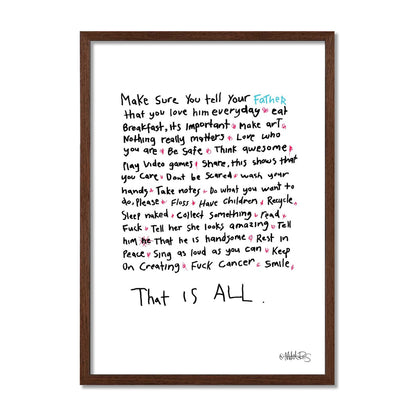 Make Sure You tell Your Father
that you love him everyday eat
Breakfast, its Important make art
Nothing really matters Love who
you are Be Safe Think awesome
play Video games Share, this shows that
you Care Dont be Scared wash your
hands Take notes Do what you want to
do, Please Floss Have Children Recycle
Sleep naked Collect something read
Fuck Tell her She looks amazing Tell
him he That he is handsome Rest in
Peace Sing as loud as you can Keep
On Creating Fuck Cancer Smile
That IS ALL.